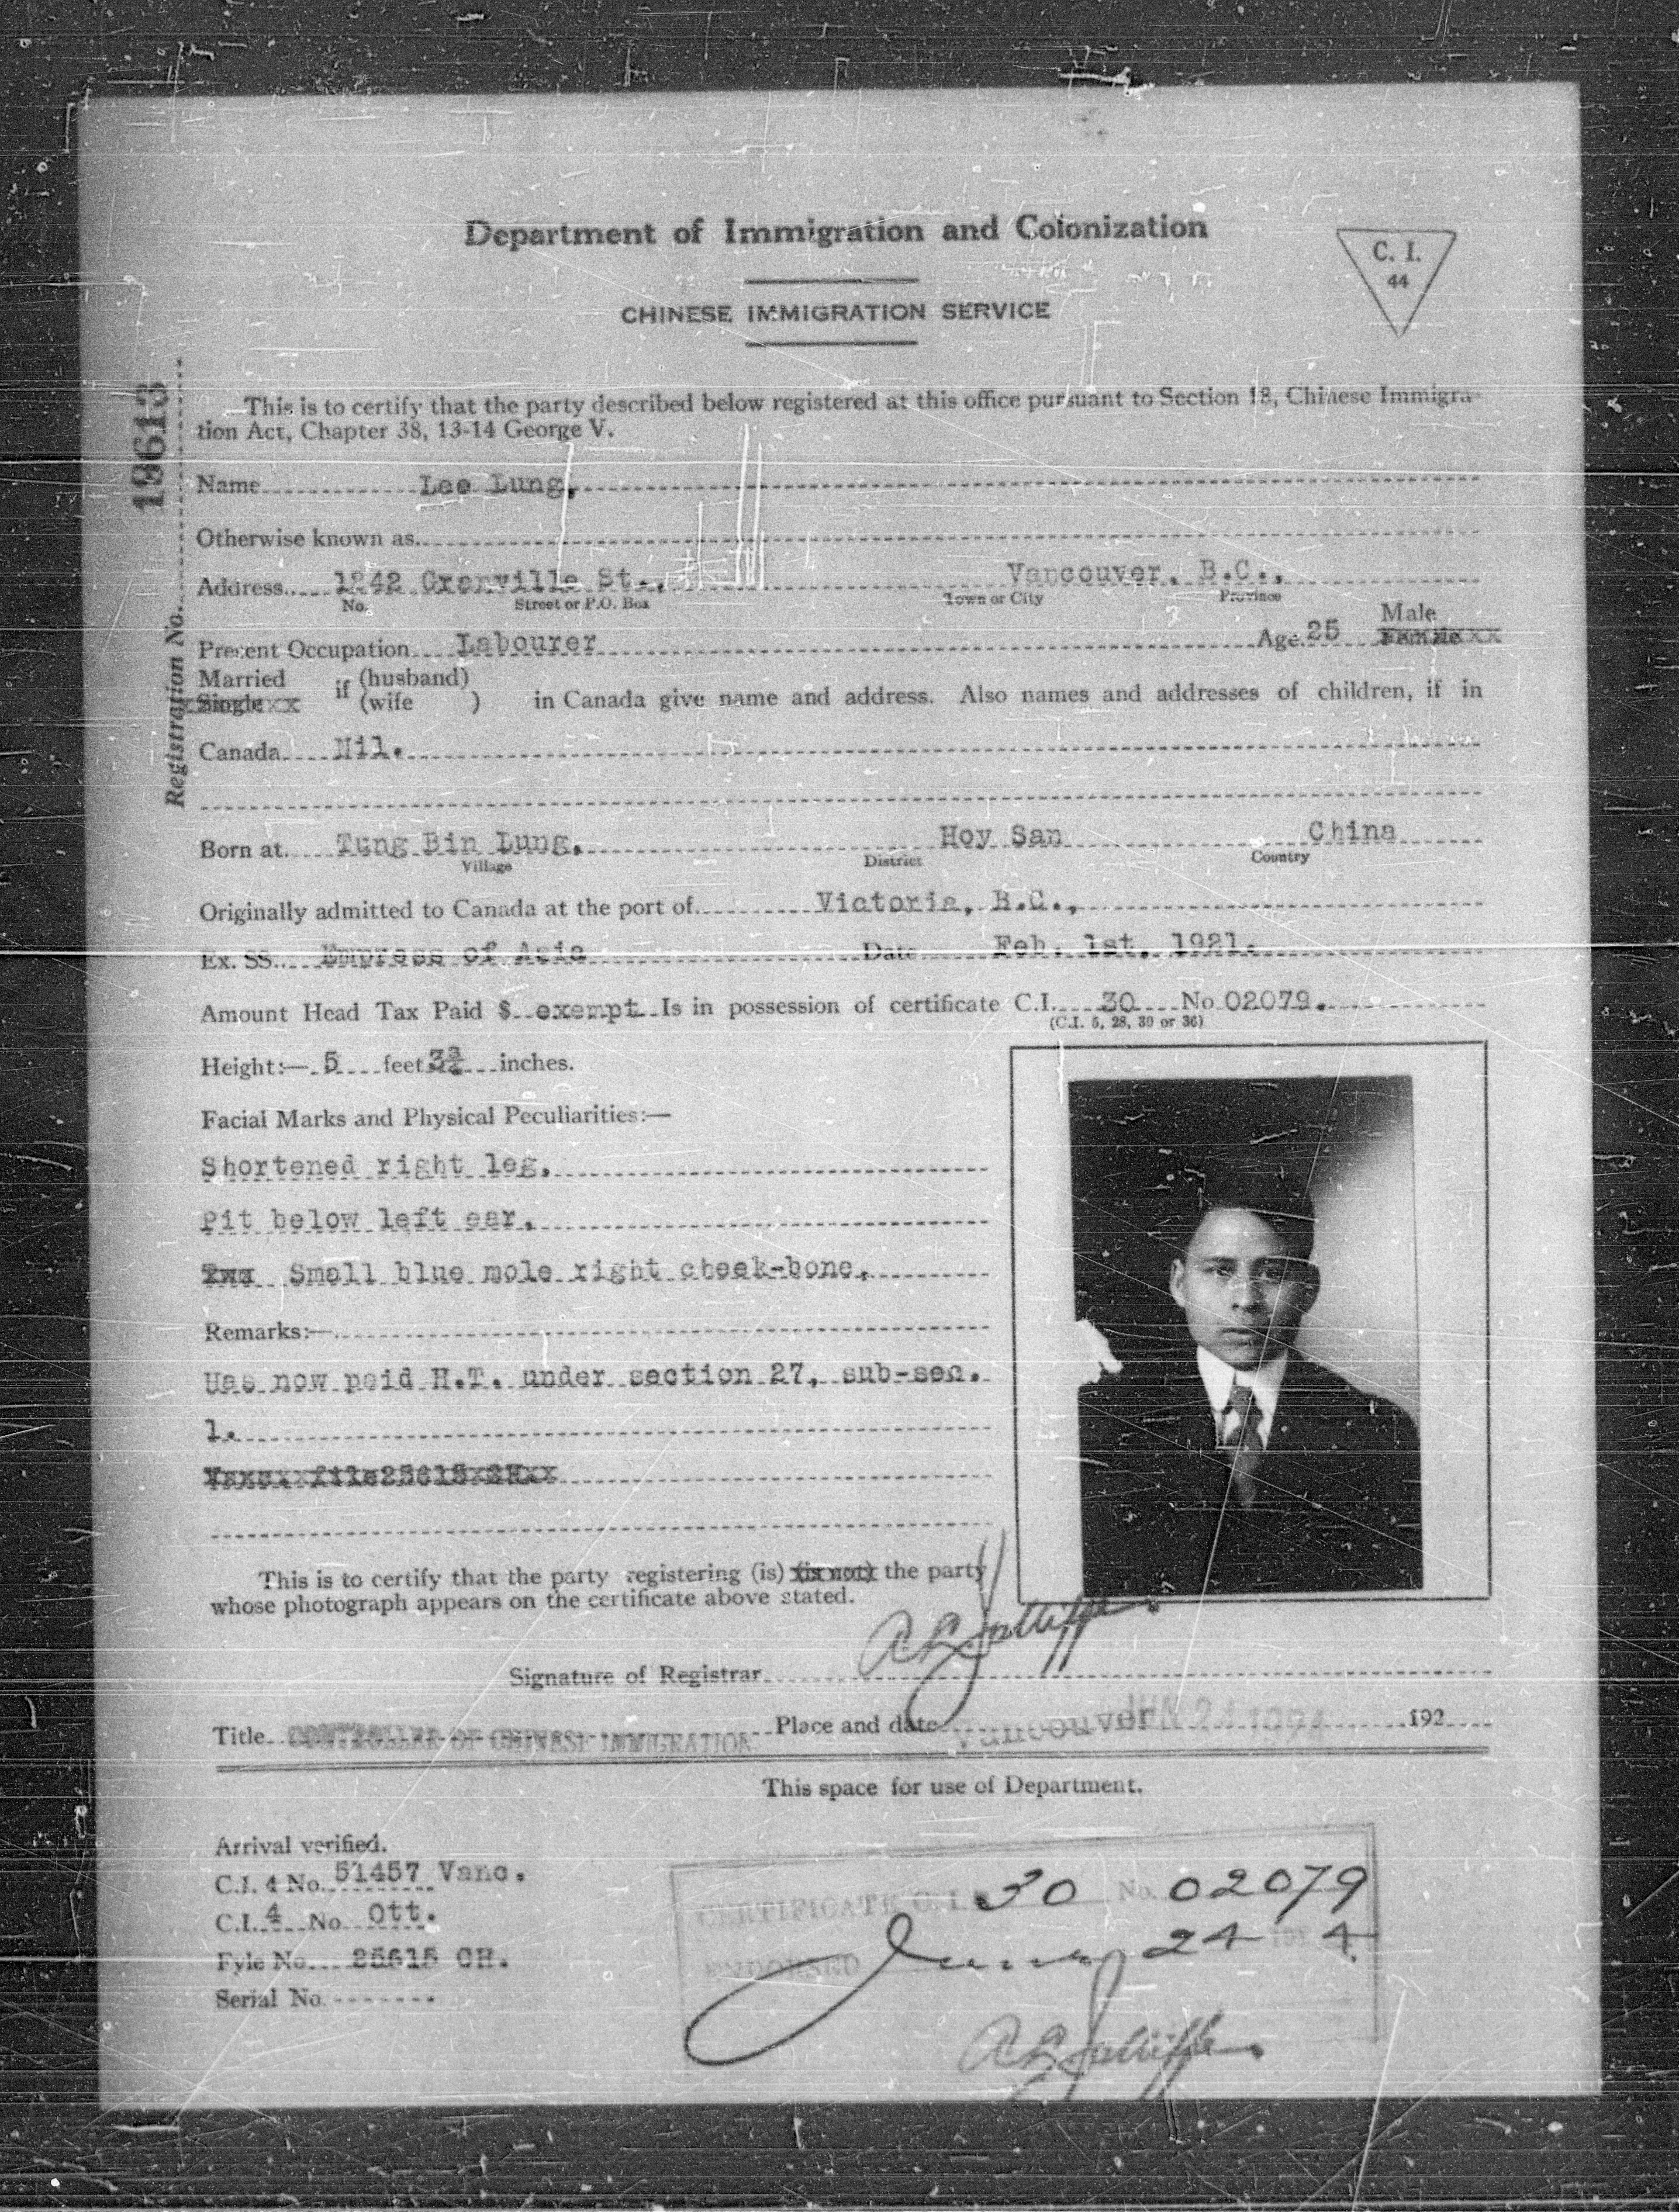 Department of Immigration and Colonization
C. I.
44
CHINESE IMMIGRATION SERVICE
Registration No. 19613
This is to certify that the party described below registered at this office pursuant to Section 18, Chinese Immigra-
tion Act, Chapter 38, 13-14 George V.
Name Lee Lung,
Otherwise known as
Address 1242 Granville St., Vancouver, B.C.,
No. Street or P.O. Box Town or City Province
Male
Present Occupation Labourer Age 25 Female xx
Married (husband)
Single xx if (wife ) in Canada give name and address. Also names and addresses of children, if in
Canada Nil.
Born at Tung Bin Lung, Hoy San China
Village District Country
Originally admitted to Canada at the port of Victoria, B.C.,
Ex. SS. Empress of Asia Date Feb. 1st, 1921.
Amount Head Tax Paid $ exempt Is in possession of certificate C.I. 30 No 02079.
(C.I. 5, 28, 30 or 36)
Height:— 5 feet 3¾ inches.
Facial Marks and Physical Peculiarities:—
Shortened right leg.
Pit below left ear.
Small blue mole right cheek-bone.
Remarks:—
Has now paid H.T. under section 27, sub-sec.
1.
This is to certify that the party registering (is) (is not) the party
whose photograph appears on the certificate above stated.
Signature of Registrar
Title CONTROLLER OF CHINESE IMMIGRATION Place and date Vancouver JUN 24 1924 192
This space for use of Department.
Arrival verified.
C.I. 4 No. 51457 Vanc.
C.I. 4 No Ott.
Fyle No. 25615 CH.
Serial No.
CERTIFICATE C. I. 30 No. 02079
ENDORSED June 24 192 4